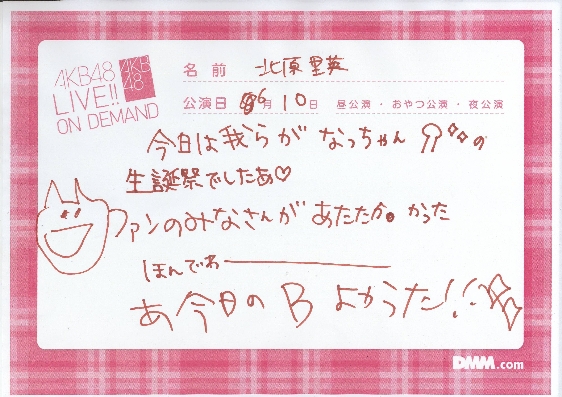 AKB48
LIVE!!
ON DEMAND
AKB
48
名前 北原里英
公演日 6月10日 昼公演・おやつ公演・夜公演
今日は我らが なっちゃん の
生誕祭でしたあ♡
ファンのみなさんが あたたか。かった
ほんでわ―
あ 今日の B よかった!!
DMM.com